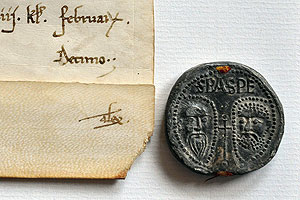 iij. kl. februarij
Decimo.
SPASPE